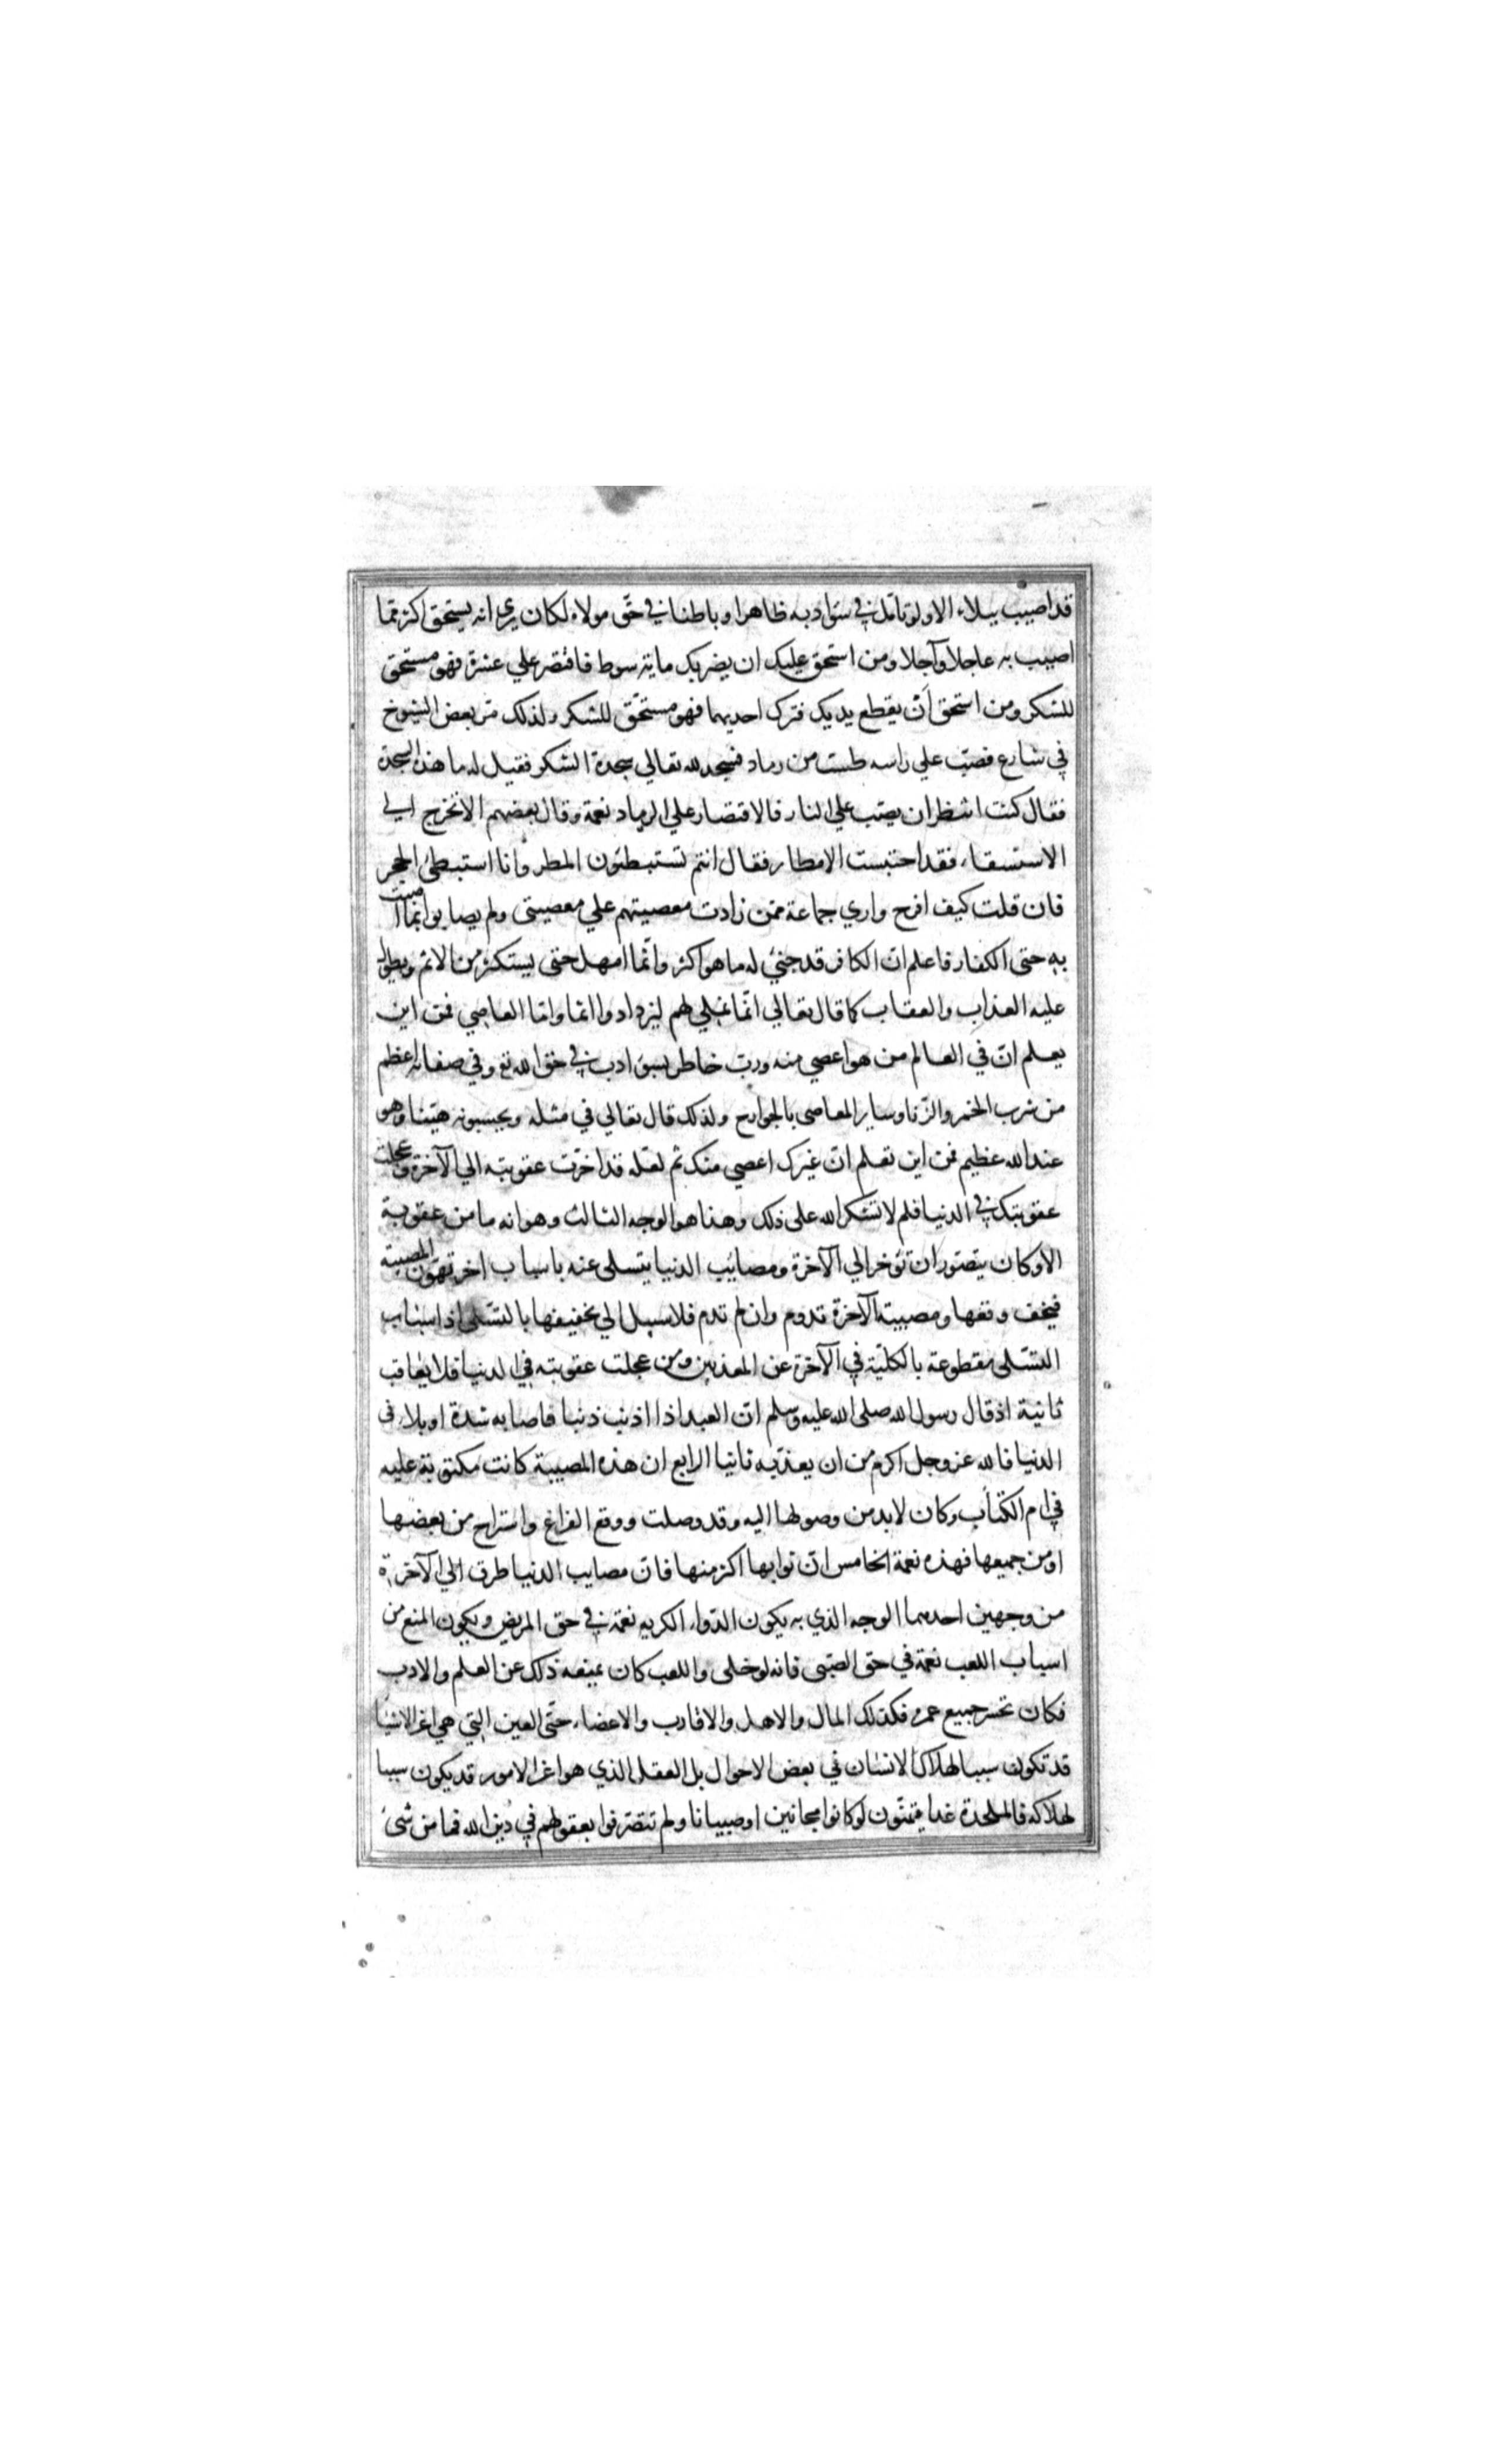 قد اصيب ببلاء الا ولو تامّل في سوّ ادبه ظاهرا وباطنا في حّق مولاه لكان يري انه يستحق اكثر ممّا
اصيب به عاجلا وآجلا ومن استحق عليك ان يضربك ماية سوط فاقتصر علي عشرة فهو مستحق
للشكر ومن استحق اَنْ يقطع يديك فترك احديهما فهو مستحّق للشكر ولذلك مّر بعض الشيوخ
في شارع فصبّ علي راسه طست من رماد فسجد لله تعالي سجدة الشكر فقيل له ما هذه السجدة
فقال كنت انتظر ان يصّب علي النار فالاقتصار علي الرماد نعمة وقال بعضهم الا تخرج الي
الاستسقاء فقد احتبست الامطار فقال انتم تستبطئون المطر وانا استبطئ الحجر
فان قلت كيف افرح واري جماعة ممّن زادت معصيتهم علي معصيتي ولم يصابوا بما اصبت
به حتى الكفار فاعلم انّ الكافر قد خبئ له ما هو اكثر وانّما امهل حتى يستكثر من الاثم ويطول
عليه العذاب والعقاب كما قال تعالي انّما نملي لهم ليزدادوا اثما وامّا العاصي فمن اين
يعلم انّ في العالم من هو اعصي منه وربّ خاطر بسوّ ادب في حق الله تع وفي صفاته اعظم
من شرب الخمر والزّنا وساير المعاصي بالجوارح ولذلك قال تعالي في مثله وتحسبونه هيّنا وهو
عند الله عظيم فمن اين تعلم انّ غيرك اعصي منك ثم لعلّه قد اخرّت عقوبته الي الآخرة وعجلت
عقوبتك في الدنيا فلم لا تشكر الله على ذلك وهذا هو الوجه الثالث وهو انه ما من عقوبة
الا وكان يتصّور ان تؤخر الي الآخرة ومصائب الدنيا يتسلى عنه باسباب اخر تهون المصيبة
فيخف وقعها ومصيبة الآخرة تدوم وان لم تدم فلا سبيل الي تخفيفها بالتسّلى اذ اسباب
التسّلى مقطوعة بالكلّية في الآخرة عن المعذبين ومن عجلت عقوبته في الدنيا فلا يعاقب
ثانية اذ قال رسول الله صلى الله عليه وسلم انّ العبد اذا اذنب ذنبا فاصابه شدة او بلاء في
الدنيا فالله عز وجل اكرم من ان يعذّبه ثانيا الرابع ان هذه المصيبة كانت مكتوبة عليه
في ام الكتاب وكان لابد من وصولها اليه وقد وصلت ووقع الفراغ واستراح من بعضها
او من جميعها فهذه نعمة الخامس انّ ثوابها اكثر منها فانّ مصايب الدنيا طرق الي الآخرة
من وجهين احدهما الوجه الذي به يكون الدّواء الكريه نعمة في حق المريض ويكون المنع من
اسباب اللعب نعمة في حق الصّبي فانه لو خلى واللعب كان يمنعه ذلك عن العلم والادب
فكان تخسر جميع عمره فكذلك المال والاهل والاقارب والاعضاء حتّى العين التي هي اعز الاشيا
قد تكون سببا لهلاك الانسان في بعض الاحوال بل العقل الذي هو اعز الامور قد يكون سببا
لهلاكه فالملحدة غدا يتمنّون لو كانوا مجانين او صبيانا ولم تتصّرفوا بعقولهم في دين الله فما من شئ